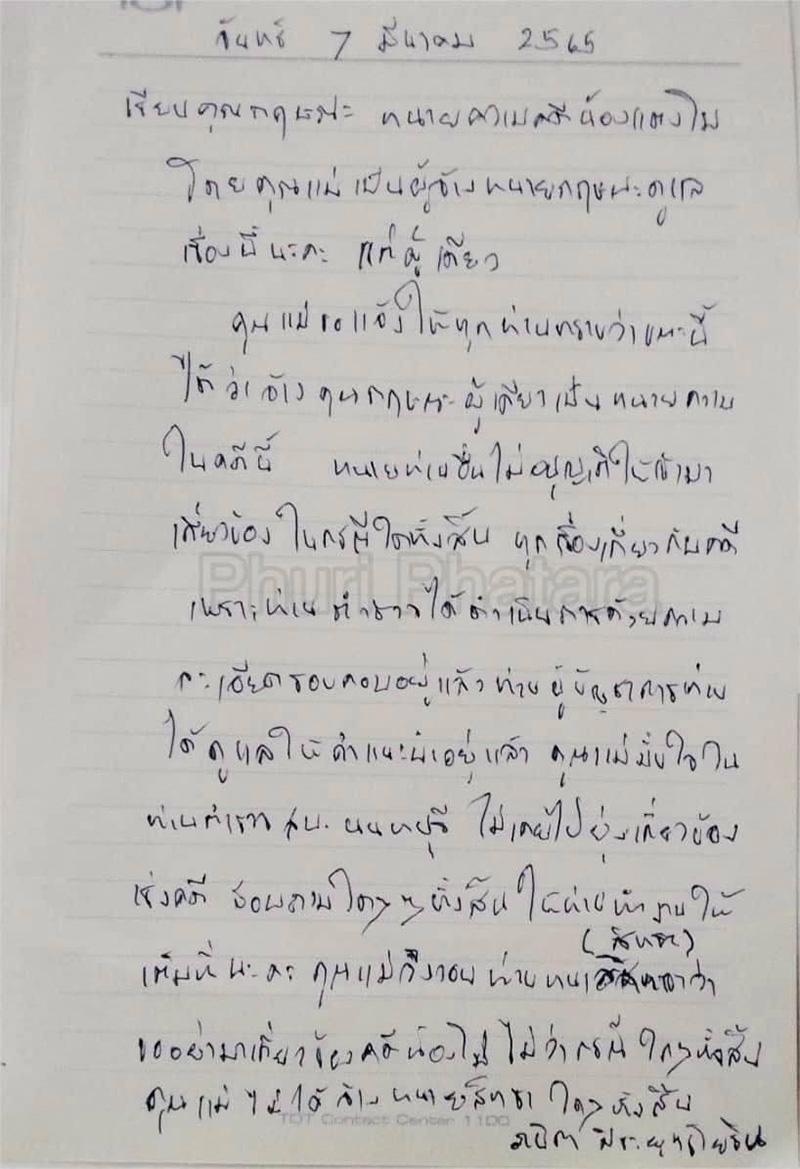 จันทร์ 7 มีนาคม 2565
เรียนคุณกฤษณะ ทนายความคดีน้องแตงโม
โดยคุณแม่เป็นผู้จ้างทนายกฤษณะดูแล
เรื่องนี้นะคะ แต่ผู้เดียว
คุณแม่ขอแจ้งให้ทุกท่านทราบว่าขณะนี้
ได้ว่าจ้างคุณกฤษณะผู้เดียวเป็นทนายความ
ในคดีนี้ ทนายท่านอื่นไม่อนุญาติให้เข้ามา
เกี่ยวข้องในกรณีใดทั้งสิ้น ทุกเรื่องเกี่ยวกับคดี
Phuri Phatara
เพราะท่านตำรวจได้ดำเนินการด้วยความ
ละเอียดรอบคอบอยู่แล้ว ท่านผู้บัญชาการท่าน
ได้ดูแลให้คำแนะนำอยู่แล้ว คุณแม่มั่นใจใน
ท่านตำรวจ สภ. นนทบุรี ไม่เคยไปยุ่งเกี่ยวข้อง
เรื่องคดี สอบถามใดๆ ทั้งสิ้น ให้ท่านทำงานให้
(สิทธา)
เต็มที่นะคะ คุณแม่จึงวอนท่านทนาย ว่า
ขออย่ามาเกี่ยวข้องคดีน้องโม ไม่ว่ากรณีใดๆทั้งสิ้น
คุณแม่ไม่ได้จ้างทนายสิทธา ใดๆทั้งสิ้น
TOT Contact Center 1100
ภนิดา ศิระยุทธโยธิน